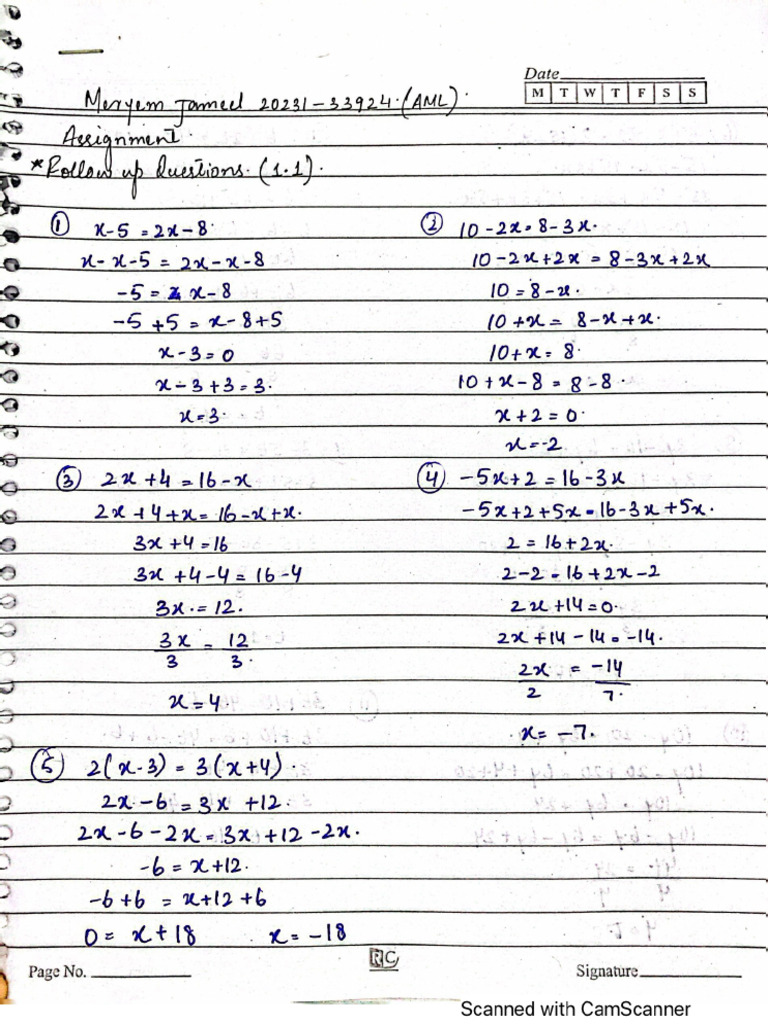 Date
M T W T F S S
Meryem Jameel 20231-33924.(AML).
Assignment.
*Follow up Questions. (1.1).
① x-5 = 2x-8.
x-x-5 = 2x-x-8
-5 = x-8
-5+5 = x-8+5
x-3=0
x-3+3=3.
x=3.
② 10-2x=8-3x.
10-2x+2x = 8-3x+2x
10=8-x.
10+x = 8-x+x.
10+x= 8.
10+x-8 = 8-8.
x+2=0.
x=-2
③ 2x+4 = 16-x
2x+4+x= 16-x+x.
3x+4=16
3x+4-4=16-4
3x.=12.
3x/3 = 12/3.
x=4
④ -5x+2 = 16-3x
-5x+2+5x=16-3x+5x.
2 = 16+2x.
2-2=16+2x-2
2x+14=0.
2x+14-14=-14.
2x/2 = -14/7.
x= -7.
⑤ 2(x-3) = 3(x+4).
2x-6=3x+12.
2x-6-2x=3x+12-2x.
-6 = x+12.
-6+6 = x+12+6
0= x+18 x= -18
Page No.
RC
Signature
Scanned with CamScanner